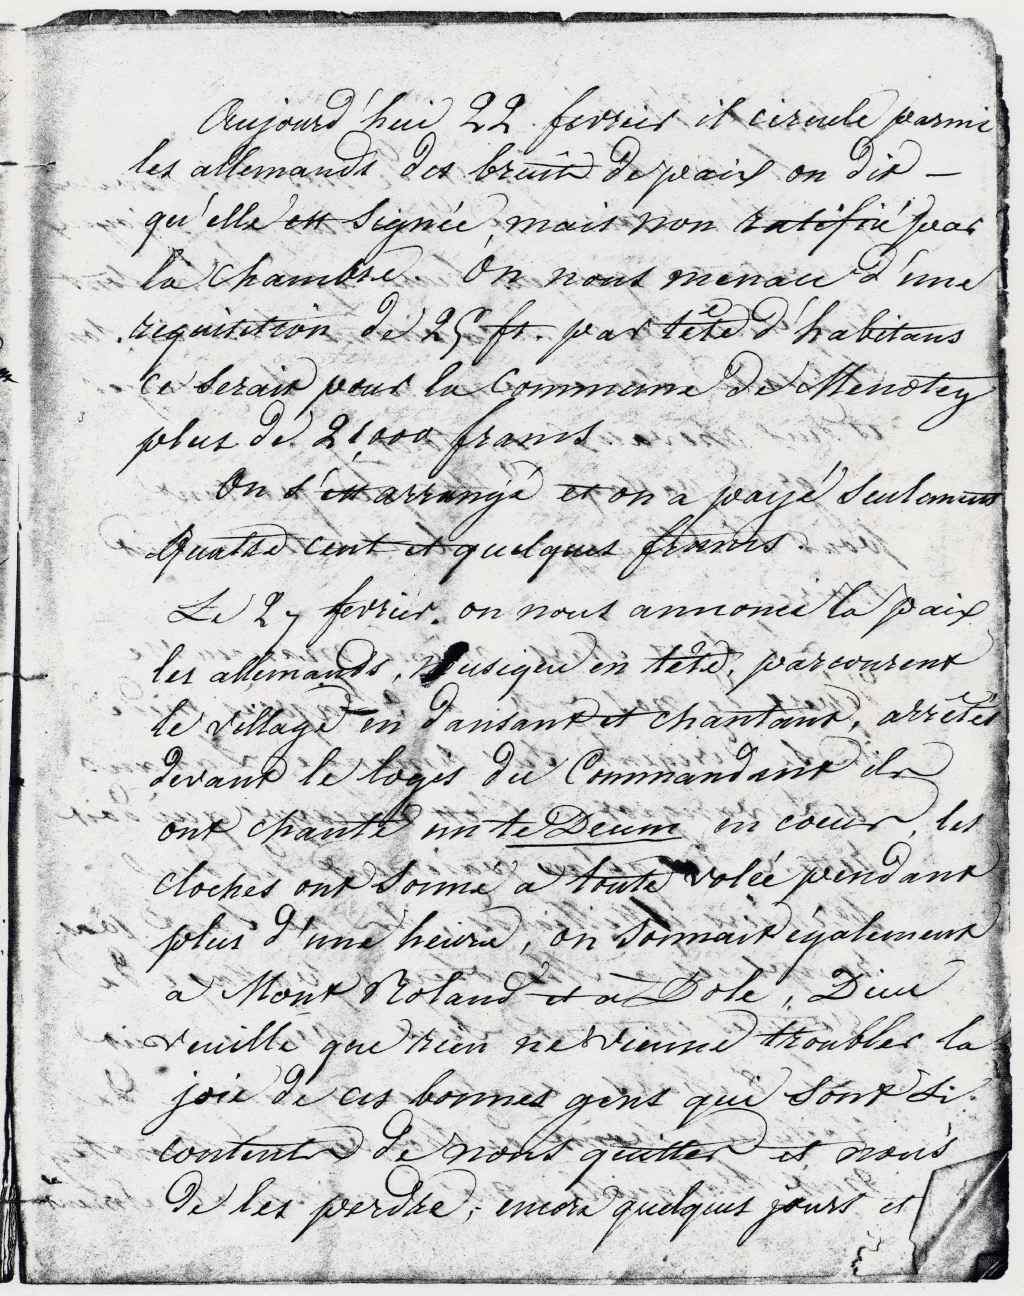 Aujourd'hui 22 fevrier il circule parmi
les allemands des bruits de paix on dit -
qu'elle est signée, mais non ratifié par
la chambre. On nous menace d'une
requisition de 25 fr. par tête d'habitans
ce serait pour la Commune de Menotey
plus de 21,000 francs.
On s'est arrangé et on a payé seulement
Quatre cent et quelques francs
Le 27 fevrier. on nous annonce la paix
les allemands, musique en tête, parcourent
le village en dansant et chantant, arrêtés
devant le loges du Commandant ils
ont chanté un te Deum en coeur, les
cloches ont sonné a toute volée pendant
plus d'une heure, on sonnait également
a Mont Roland et a Dole, Dieu
veuille que rien ne vienne troubler la
joie de ces bonnes gens qui sont si
contents de nous quitter et nous
de les perdre, encore quelques jours et